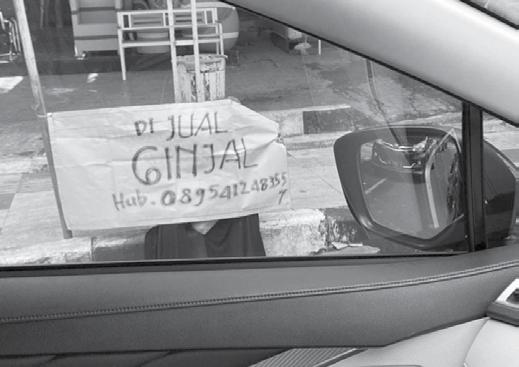 DI JUAL
GINJAL
Hub. 089541248355
7